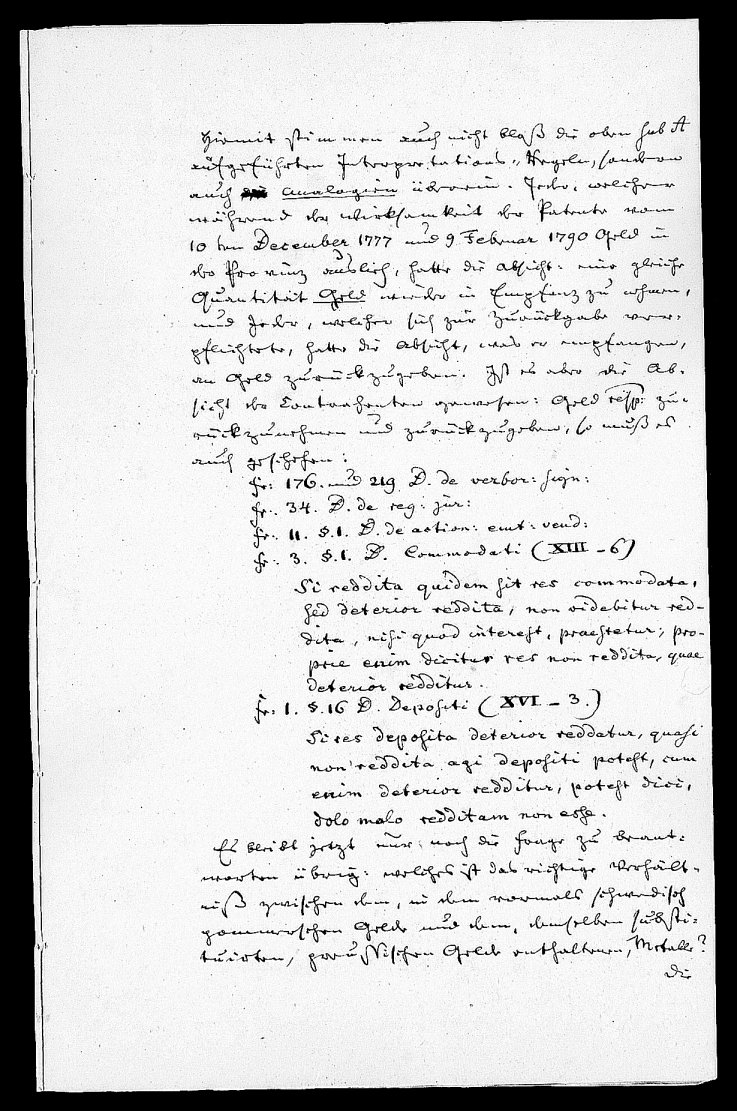 Hiemit stimmen auch nicht bloß die oben sub A
aufgeführten Interpretations-Regeln, sondern
auch Analogien überein. Jeder, welcher
während der Wirksamkeit der Patente vom
10ten December 1777 und 9 Februar 1790 Geld in
der Provinz auslieh, hatte die Absicht: eine gleiche
Quantität Geld wieder in Empfang zu nehmen,
und Jeder, welcher sich zur Zurückgabe ver-
pflichtete, hatte die Absicht, was er empfangen,
an Geld zurückzugeben. Ist es aber die Ab-
sicht der Contrahenten gewesen: Geld resp: zu-
rückzunehmen und zurückzugeben, so muß es
auch geschehen:
fr: 176. und 219 D. de verbor: sign:
fr: 34. D. de reg: jur:
fr: 11. §.1. D. de action: emt: vend:
fr: 3. §.1. D. Commodati (XIII - 6)
Si reddita quidem sit res commodata,
sed deterior reddita, non videbitur red-
dita, nisi quod interest, praestetur; pro-
prie enim dicitur res non reddita, quae
deterior redditur.
fr: 1. §.16 D. Depositi (XVI - 3.)
Si res deposita deterior reddatur, quasi
non reddita agi depositi potest, cum
enim deterior redditur, potest dici,
dolo malo redditam non esse.
Es bleibt jetzt nur noch die Frage zu beant-
worten übrig: welches ist das richtige Verhält-
niß zwischen dem, in dem vormals schwedisch
pommerschen Gelde und dem, demselben substi-
tuirten, preußischen Gelde enthaltenen, Metalle?
die